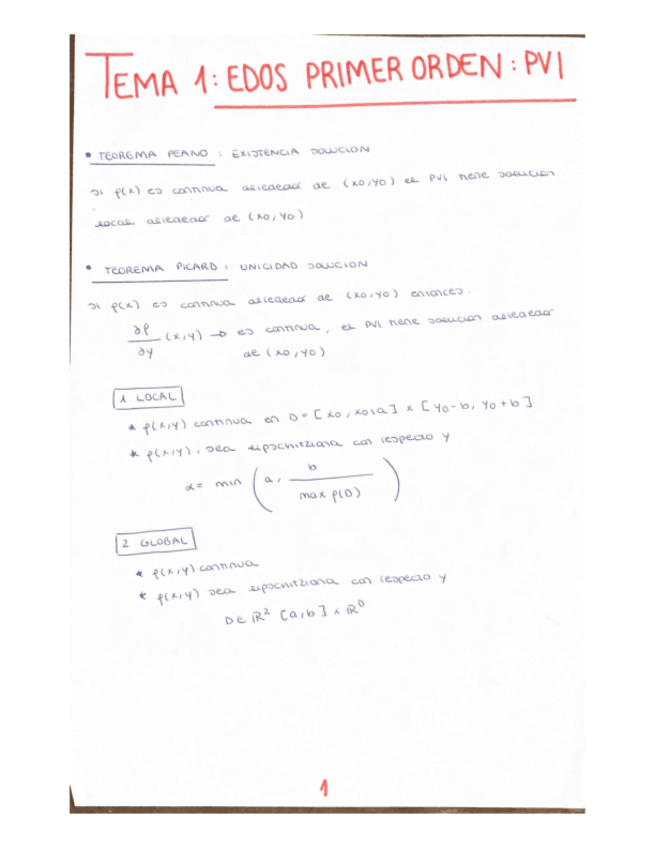 TEMA 1: EDOS PRIMER ORDEN: PVI
• TEOREMA PEANO: EXISTENCIA SOLUCION
si f(x) es continua alrededor de (x0,y0) el PVI tiene solucion
local alrededor de (x0,y0)
• TEOREMA PICARD: UNICIDAD SOLUCION
si f(x) es continua alrededor de (x0,y0) entonces.
∂f/∂y (x,y) → es continua, el PVI tiene solucion alrededor
de (x0,y0)
1 LOCAL
* f(x,y) continua en D = [x0, x0+a] x [y0-b, y0+b]
* f(x,y), sea lipschitziana con respecto y
α = min (a, b / max f(D))
2 GLOBAL
* f(x,y) continua
* f(x,y) sea lipschitziana con respecto y
D ∈ ℝ² [a,b] x ℝ^D
1